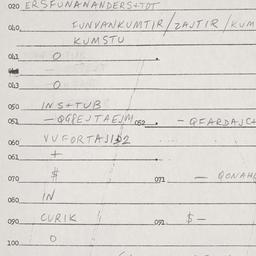 020 ERSFUNANANDERS+TDT
040 IUNVANKUMTIR/ZAJTIR/KUM
KUMSTU
041 O
043 O
050 INS+TUB
051 -QGREJTAEJM 052 -QFARDAJC+
060 VUFORTAJID2
061 +
070 $ 071 - QONAH
080 IN
090 CURIK 091 $-
100 O